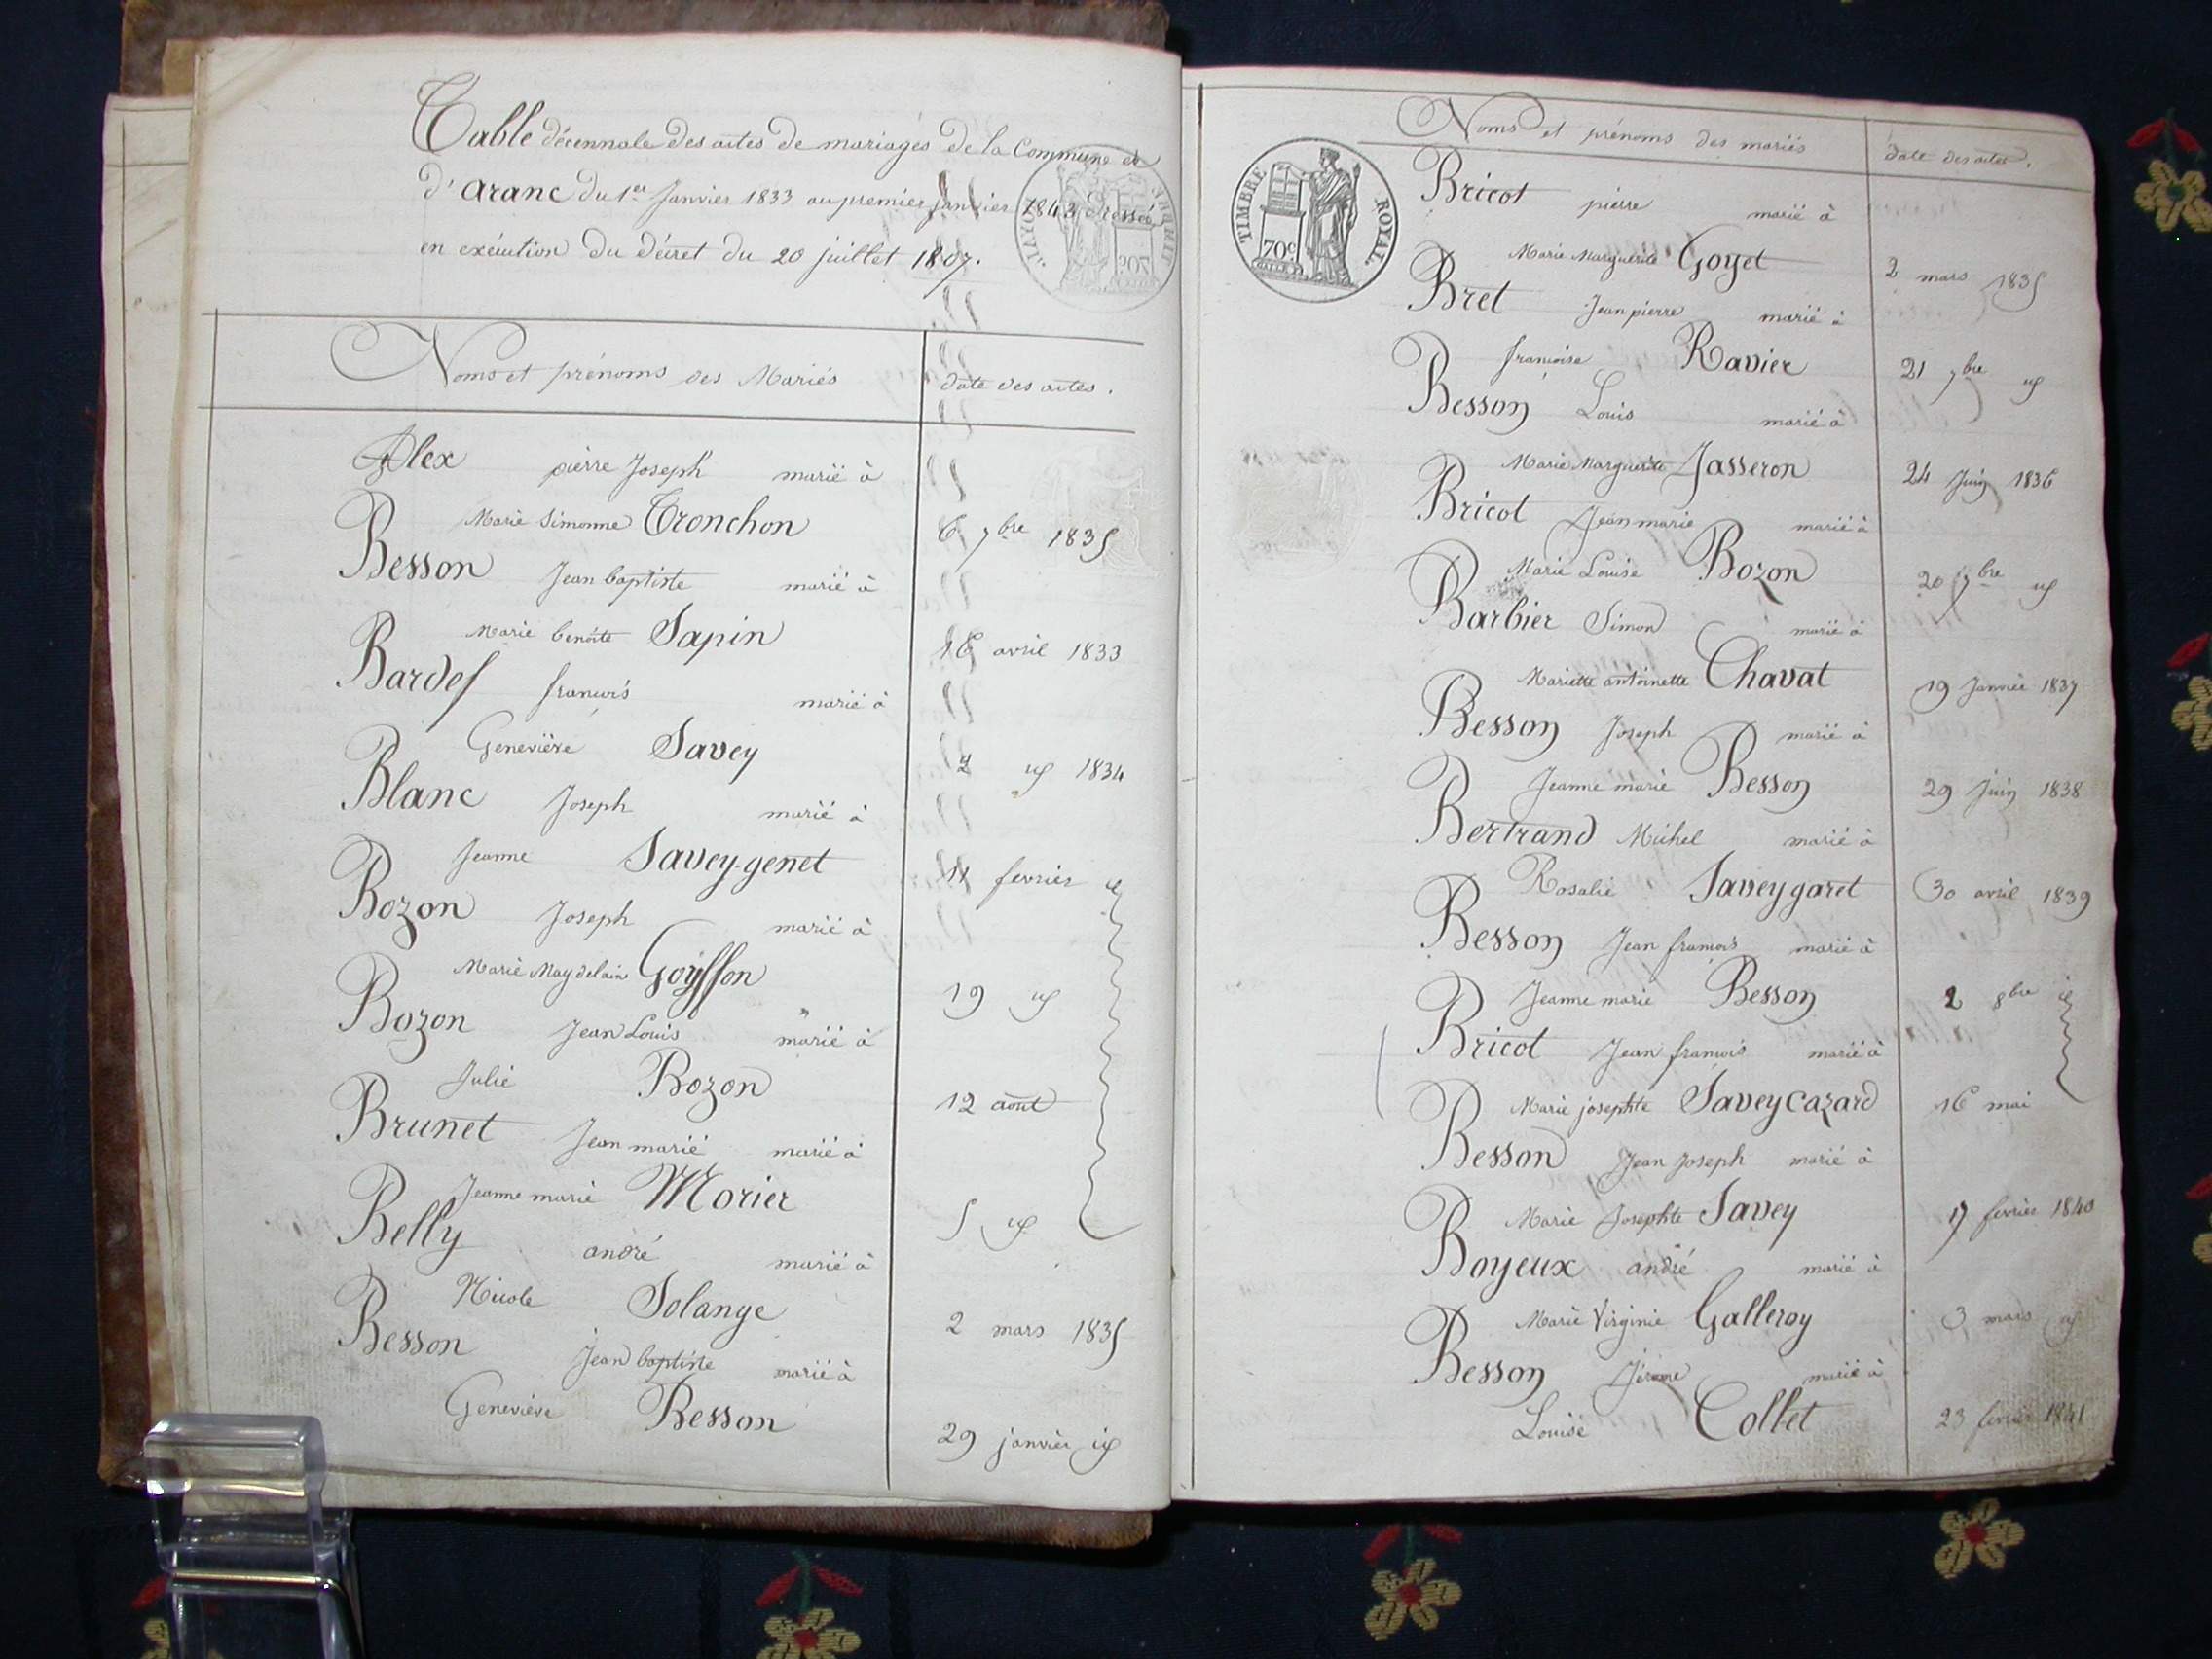 Table décennale des actes de mariages de la Commune
d'aranc du 1er Janvier 1833 au premier janvier 1843 dressé
en exécution du décret du 20 juillet 1807.
Noms et prénoms des Mariés date des actes.
Alex pierre Joseph marié à
Marie Simonne Tronchon 6 7bre 1835
Besson Jean baptiste marié à
Marie benoite Sapin 16 avril 1833
Bardef francois marié à
Genevière Savey id 1834
Blanc Joseph marié à
Jeanne Savey-genet 11 fevrier id
Bozon Joseph marié à
Marie Maydelain Goyffon 19 id
Bozon Jean Louis marié à
Julie Bozon 12 aout
Brunet Jean marié marié à
Jeanne marie Morier 5 id
Belly andré marié à
Nicole Solange 2 mars 1835
Besson Jean baptiste marié à
Geneviève Besson 29 janvier id
Noms et prénoms des mariés date des actes.
TIMBRE ROYAL
70c
Bricot pierre marié à
Marie Marguerite Goyet 2 mars 1835
Bret Jean pierre marié à
francoise Ravier 21 7bre id
Besson Louis marié à
Marie Marguerite Jasseron 24 Juin 1836
Bricot Jean marie marié à
Marie Louise Bozon 20 7bre id
Barbier Simon marié à
Mariette antoinette Chavat 19 Janvier 1837
Besson Joseph marié à
Jeanne marie Besson 29 Juin 1838
Bertrand Michel marié à
Rosalie Savey garet 30 avril 1839
Besson Jean francois marié à
Jeanne marie Besson 2 8bre id
Bricot Jean francois marié à
Marie josephte Savey cazard 16 mai
Besson Jean Joseph marié à
Marie Josephte Savey 17 fevrier 1840
Boyeux andré marié à
Marie Virginie Galleroy 3 mars id
Besson Jérome marié à
Louise Collet 23 fevrier 1841